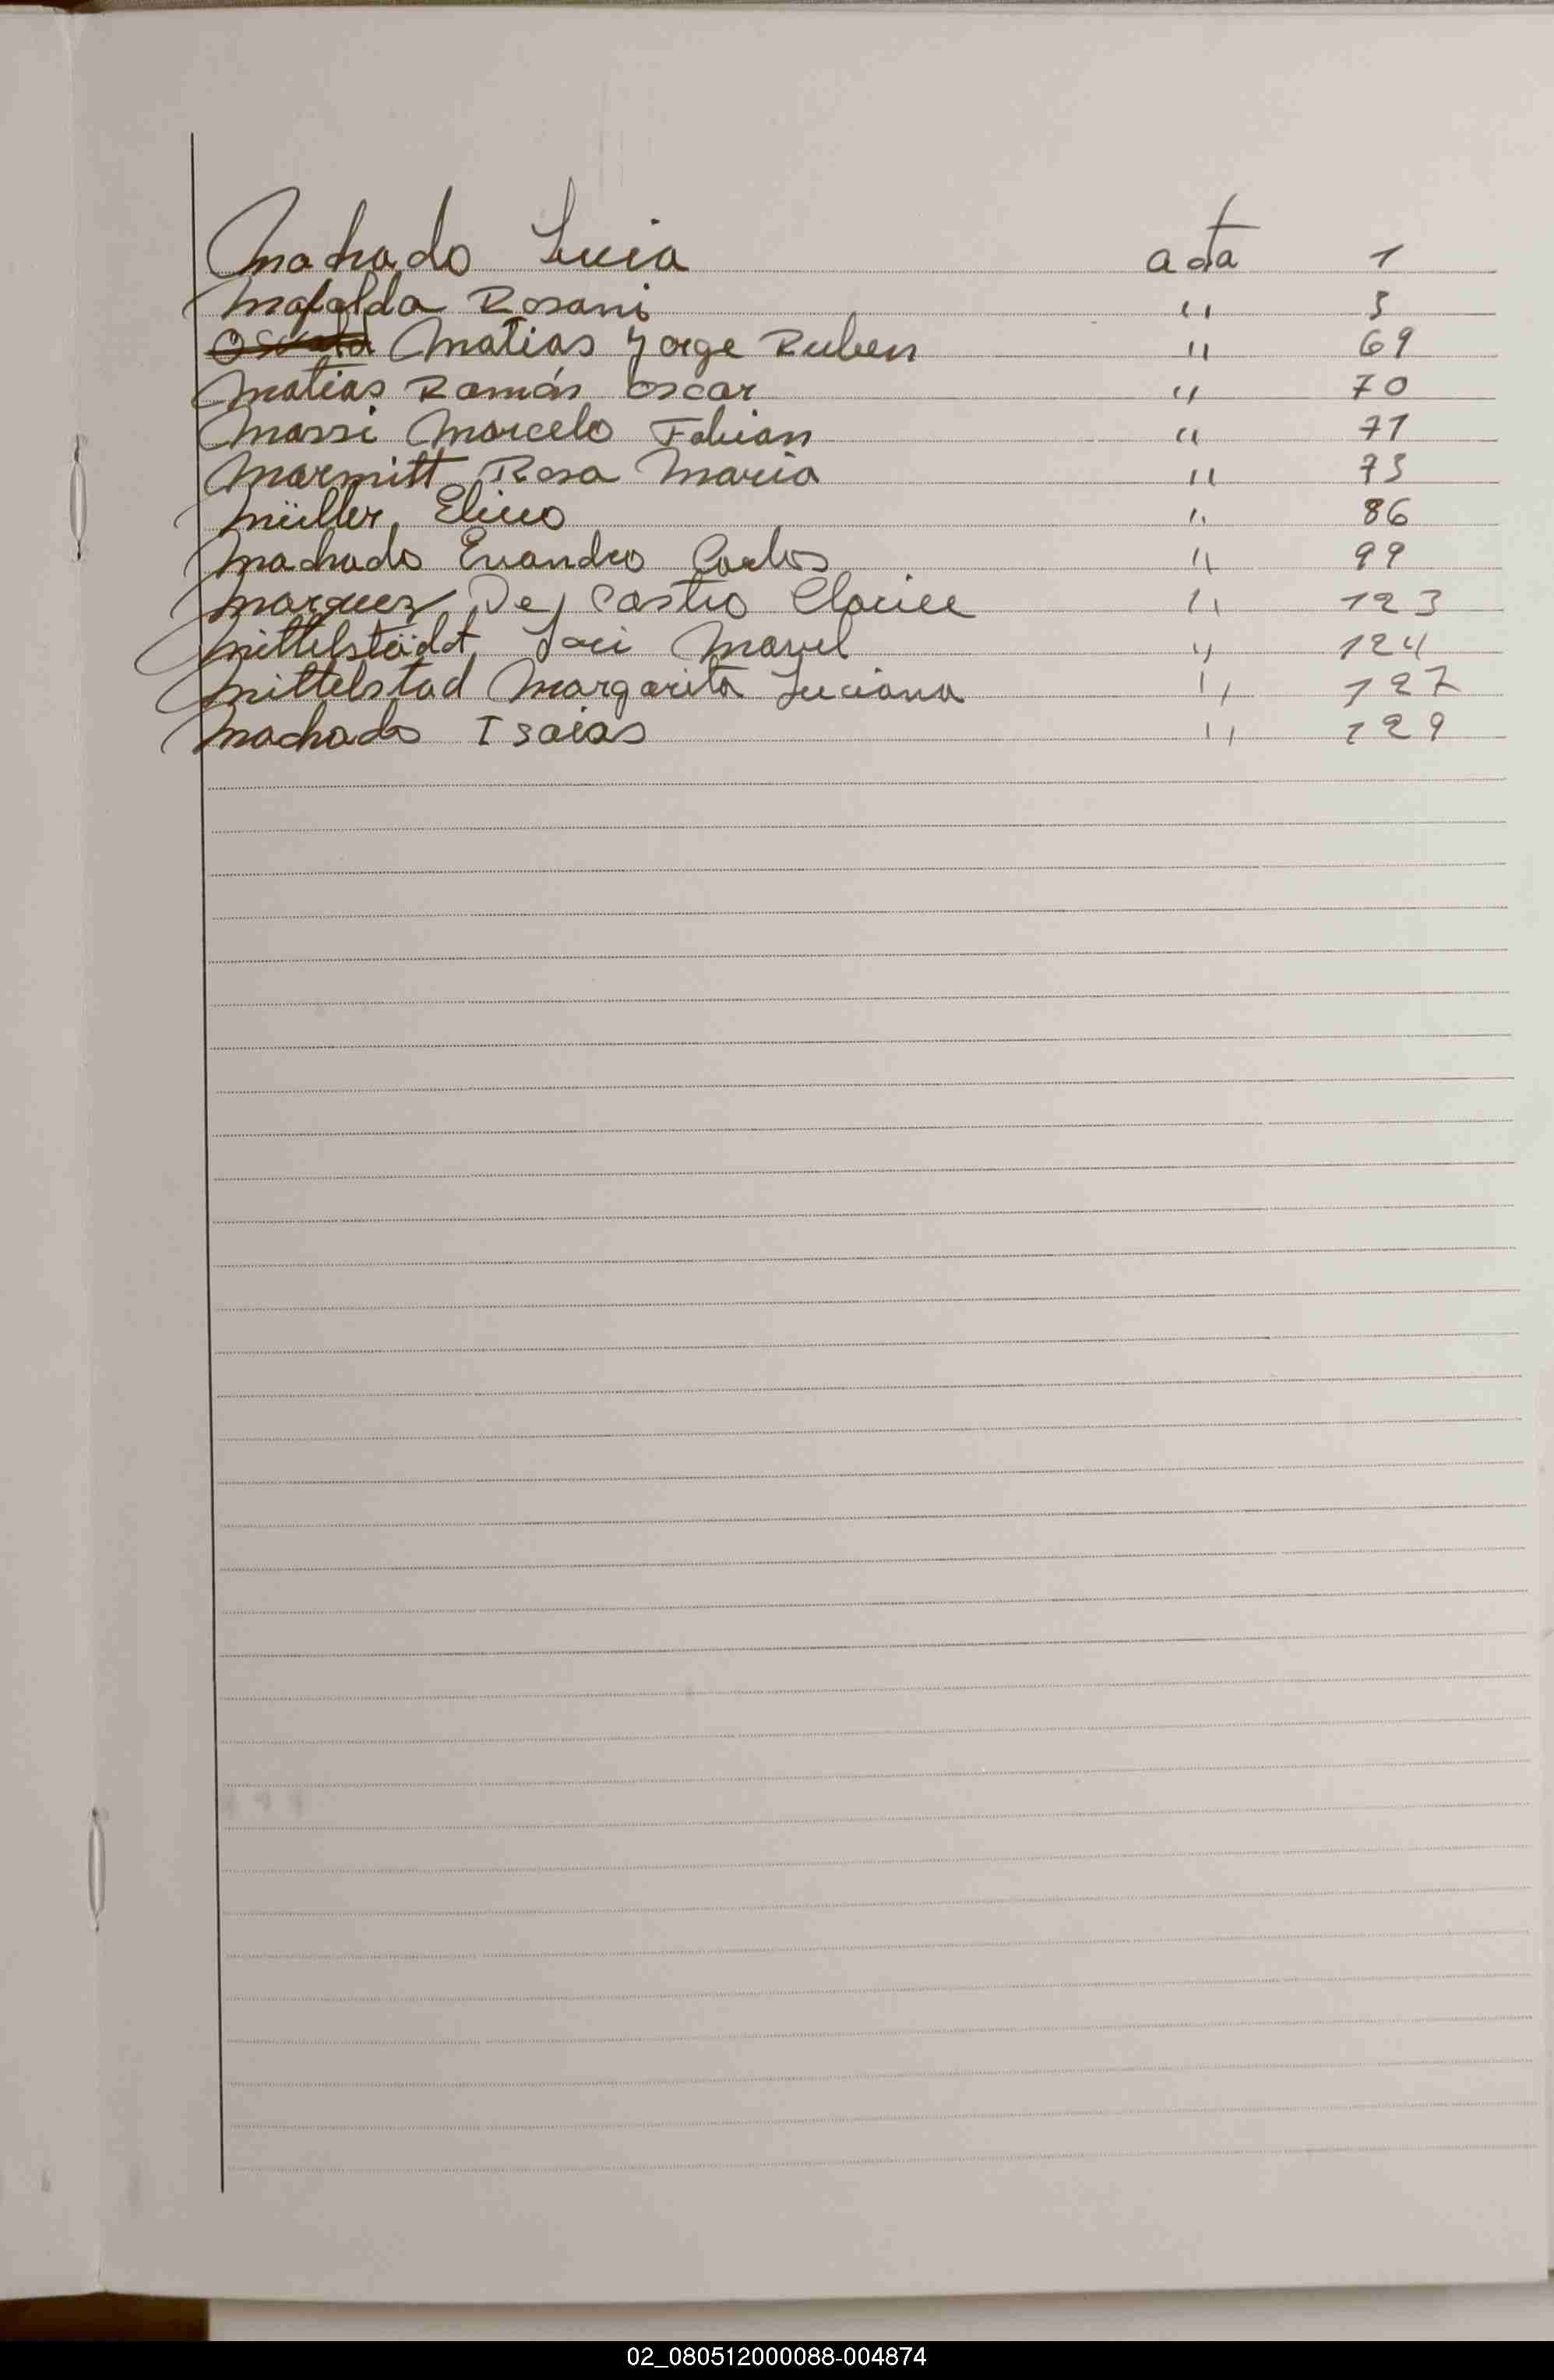 Machado Lucia acta 1
Mafalda Rosani " 3
Matias Jorge Ruben " 69
Matias Ramón Oscar " 70
Massi Marcelo Fabian " 71
Marmitt Rosa Maria " 73
Müller, Elicio " 86
Machado Evandro Carlos " 99
Marquez De Castro Clarice " 123
Mittelstädt, Loci Mavel " 124
Mittelstad Margarita Luciana " 127
Machado Isaias " 129
02_080512000088-004874